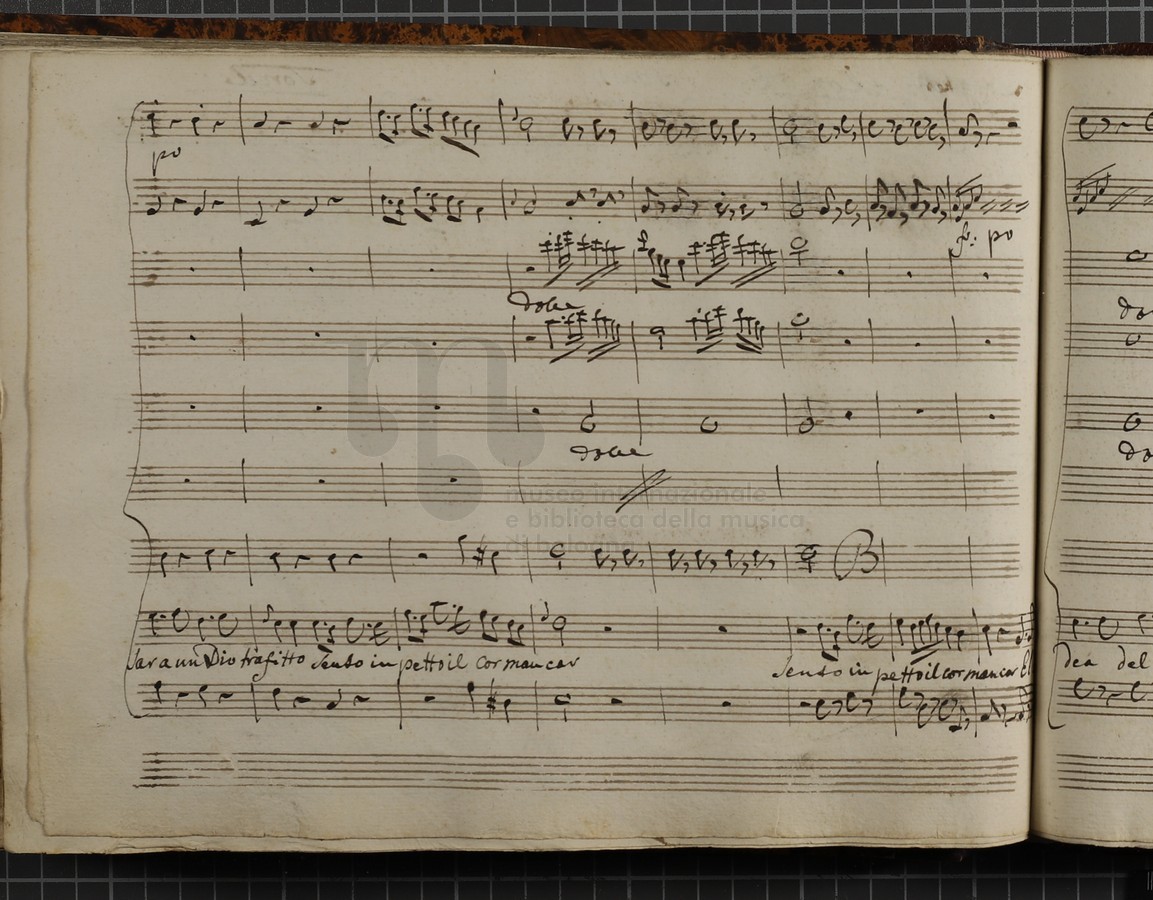 po
fo: po
dolce
do
dolce
do
museo internazionale
e biblioteca della musica
di bologna
B
Sara un Dio trafitto Sento in petto il cor mancar
Sento in petto il cor mancar El
dea del